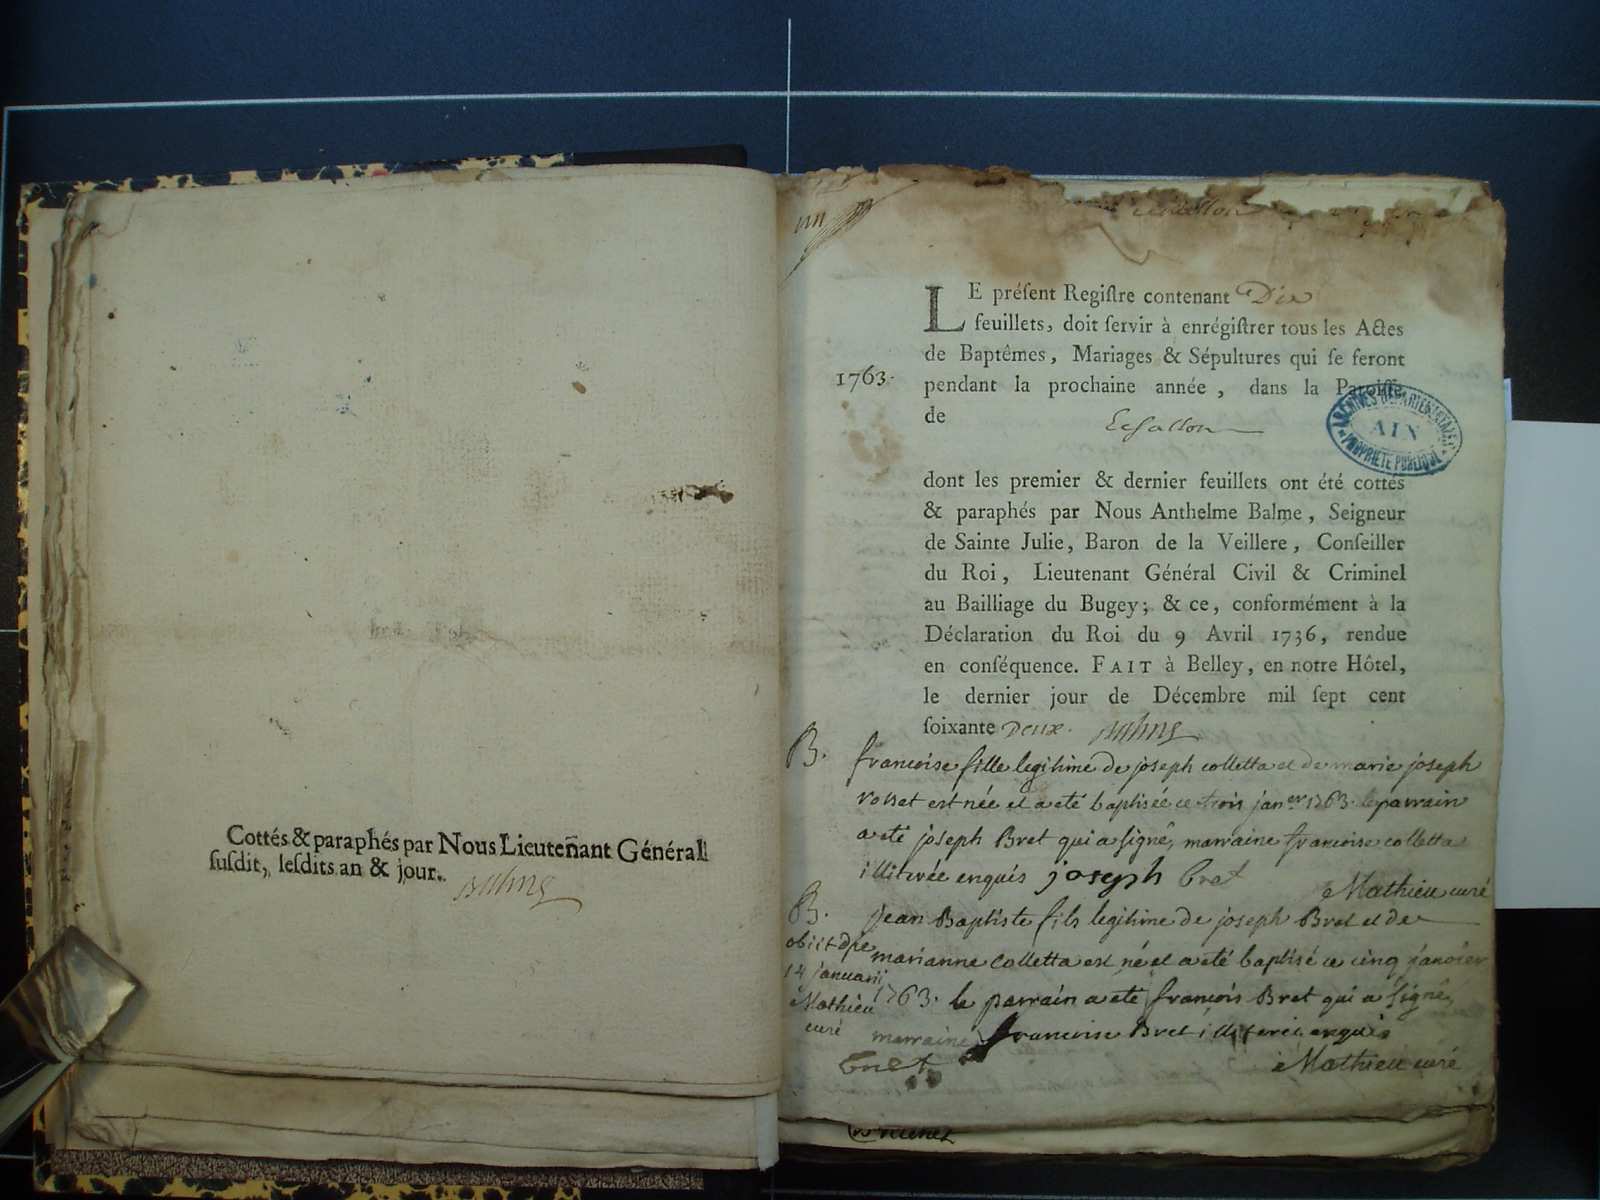 Cottés & paraphés par Nous Lieuteñant Général
ſuſdit, leſdits an & jour.
un
LE préſent Regiſtre contenant Dix
feuillets, doit ſervir à enrégiſtrer tous les Actes
de Baptêmes, Mariages & Sépultures qui ſe feront
1763.
pendant la prochaine année, dans la Paroiſſe
de Echallon
ARCHIVES DÉPARTEMENTALES
AIN
PROPRIÉTÉ PUBLIQUE
dont les premier & dernier feuillets ont été cottés
& paraphés par Nous Anthelme Balme, Seigneur
de Sainte Julie, Baron de la Veillere, Conſeiller
du Roi, Lieutenant Général Civil & Criminel
au Bailliage du Bugey; & ce, conformément à la
Déclaration du Roi du 9 Avril 1736, rendue
en conſéquence. FAIT à Belley, en notre Hôtel,
le dernier jour de Décembre mil ſept cent
ſoixante Deux. Balme
B. francoise fille legitime de joseph colletta et de marie joseph
rosset est née et a eté baptisée ce trois janer 1763. le parrain
a eté joseph Bret qui a signé, marraine francoise colletta
illiterée enquis joseph bret
Mathieu curé
B. jean Baptiste fils legitime de joseph Bret et de
marianne colletta est né et a eté baptisé ce cinq janvier
1763. le parrain a eté francois Bret qui a signé
marraine francoise Bret illiterée enquis
bret
Mathieu curé
obiit die
14 januarii
Mathieu
curé